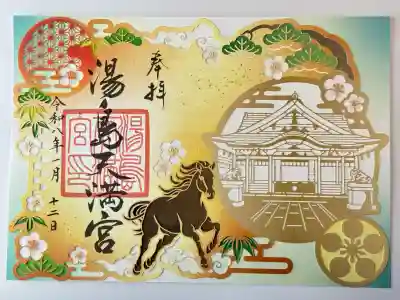 奉拝
湯島天満宮
令和八年一月十二日